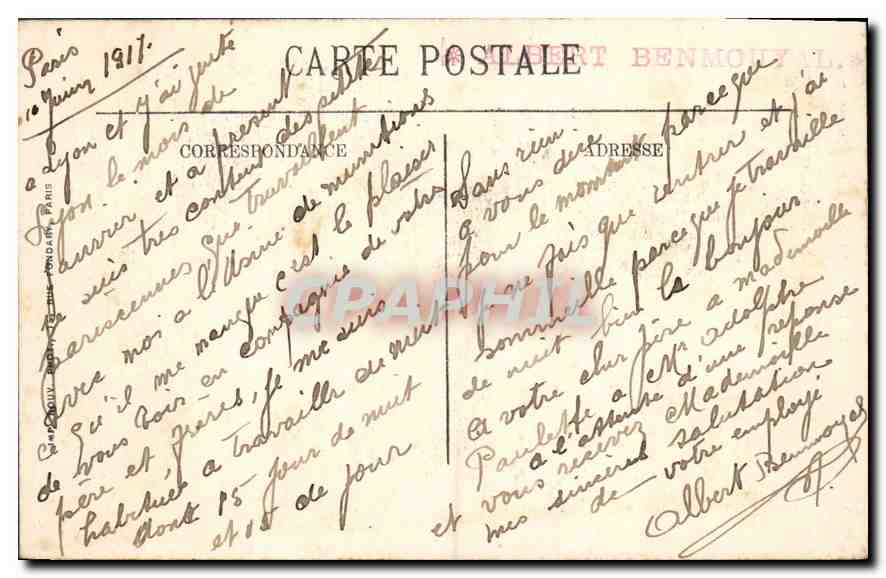 CARTE POSTALE
* ALBERT BENMOUYAL. *
CORRESPONDANCE
ADRESSE
PHOT. RUE FONDARY, PARIS
Paris
10 Juin 1917.
a Lyon et j'ai quité
Lyon le mois de
et a présent
je suis tres content des petites
parisiennes que travaillent
avec moi a l'Usine de munitions
ce Qu'il me manque c'est le plaisir
de vous voir en compagnie de votre
père et frères, je me suis
habitué a travaille de nuit
dont 15 jour de nuit
et 15 de jour
Sans rien
a vous dire
pour le momment parceque
je ne fais que rentrer et j'ai
sommeille parceque je travaille
de nuit bien le bonjour
a votre cher père a mademoille
Paulette a Mr Adolphe
a l'attente d'une reponse
et vous recevez Mademoille
mes sincères salutation
de votre employé
Albert Benmouyal
CPAPHIL